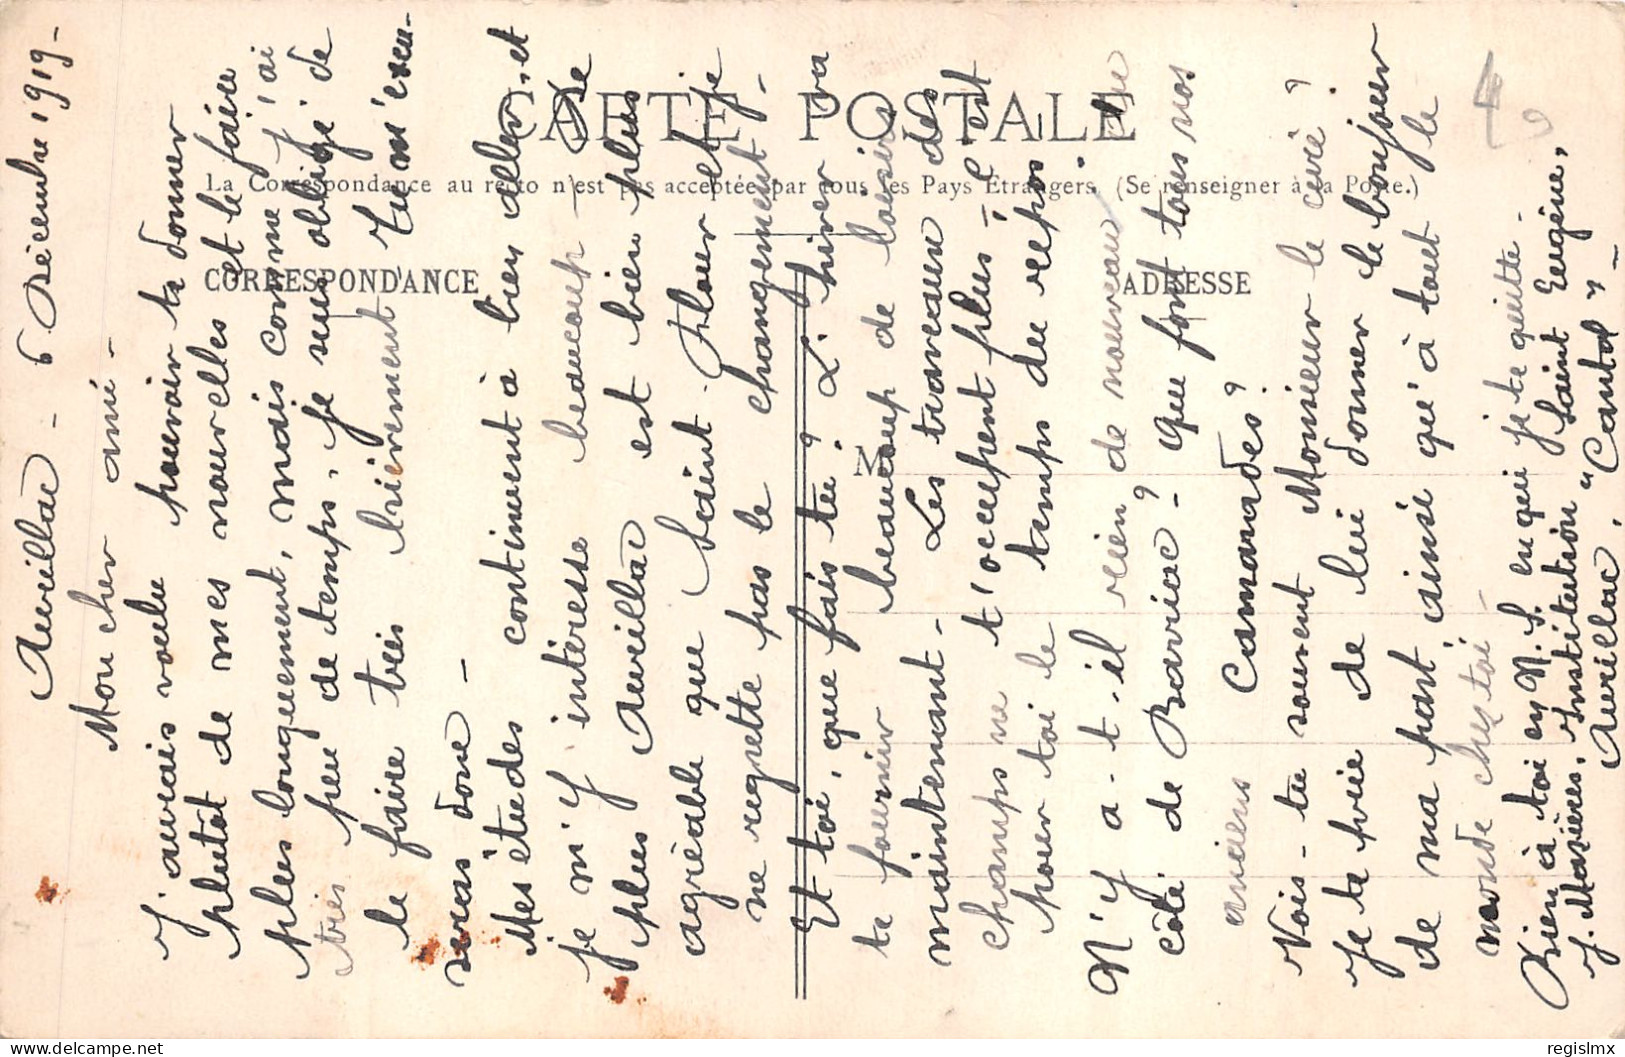 CARTE POSTALE
La Correspondance au recto n'est pas acceptée par tous les Pays Etrangers. (Se renseigner à la Poste.)
CORRESPONDANCE
ADRESSE
M
40
Aurillac - 6 Décembre 1919 -
Mon cher ami -
J'aurais voulu pouvoir te donner
plutôt de mes nouvelles et le faire
plus longuement, mais comme j'ai
très peu de temps, je suis obligé de
le faire très brièvement. Tu m'excu-
seras donc -
Mes études continuent à bien aller, et
je m'y intéresse beaucoup - De
plus Aurillac est bien plus
agréable que Saint-Flour et je
ne regrette pas le changement -
Et toi, que fais-tu? L'hiver va
te fournir beaucoup de loisirs
maintenant - Les travaux des
champs ne t'occupent plus - C'est
pour toi le temps du repos.
N'y a-t-il rien de nouveau du
côté de Barriac? - Que font tous nos
anciens Camarades?
Vois-tu souvent Monsieur le curé?
Je te prie de lui donner le bonjour
de ma part ainsi qu'à tout le
monde chez toi -
Bien à toi en N. S. en qui je te quitte -
J. Mazières, Institution Saint Eugène,
Aurillac, "Cantal" -
regislmx